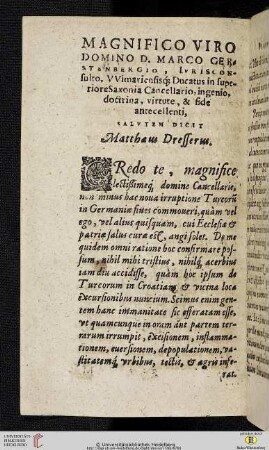 MAGNIFICO VIRO
DOMINO D. MARCO GER-
STENBERGIO, IVRISCON-
sulto, VVimariensisq; Ducatus in supe-
riore Saxonia Cancellario, ingenio,
doctrina, virtute, & fide
antecellenti,
SALVTEM DICIT
Matthæus Dresserus.
CRedo te, magnifice
lectissimeq́, domine Cancellarie,
non minus hac noua irruptione Turcorũ
in Germaniæ fines commoueri, quàm vel
ego, vel alius quisquam, cui Ecclesiæ &
patriæ salus curæ est, angi solet. De me
quidem omni ratione hoc confirmare pos-
sum, nihil mihi tristius, nihilq́, acerbius
iam diu accidisse, quàm hoc ipsum de
Turcorum in Croatiam & vicina loca
excursionibus nuncium. Scimus enim gen-
tem hanc immanitate sic efferatam esse,
vt quamcunque in oram aut partem ter-
rarum irrumpit, excisionem, inflamma-
tionem, euersionem, depopulationem, va-
stitatemq́, vrbibus, tectis, & agris infe-
rat.
© Universitätsbibliothek Heidelberg